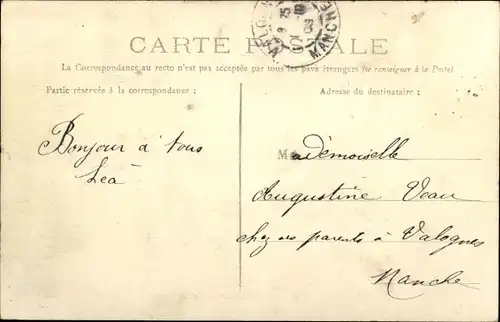 CARTE POSTALE
MANCHE
La Correspondance au recto n'est pas acceptée par tous les pays étrangers (se renseigner à la Poste)
Partie réservée à la correspondance :
Adresse du destinataire :
Bonjour à tous
Léa
Mademoiselle
Augustine Veau
chez ses parents à Valognes
Manche